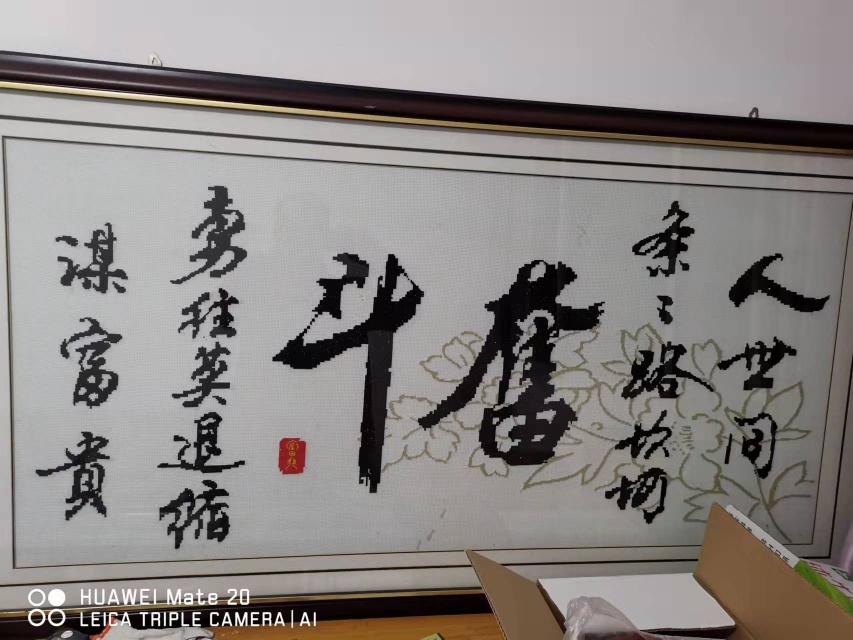 人世间
条々路坎坷
奮斗
勇往莫退缩
谋富貴
HUAWEI Mate 20
LEICA TRIPLE CAMERA | AI